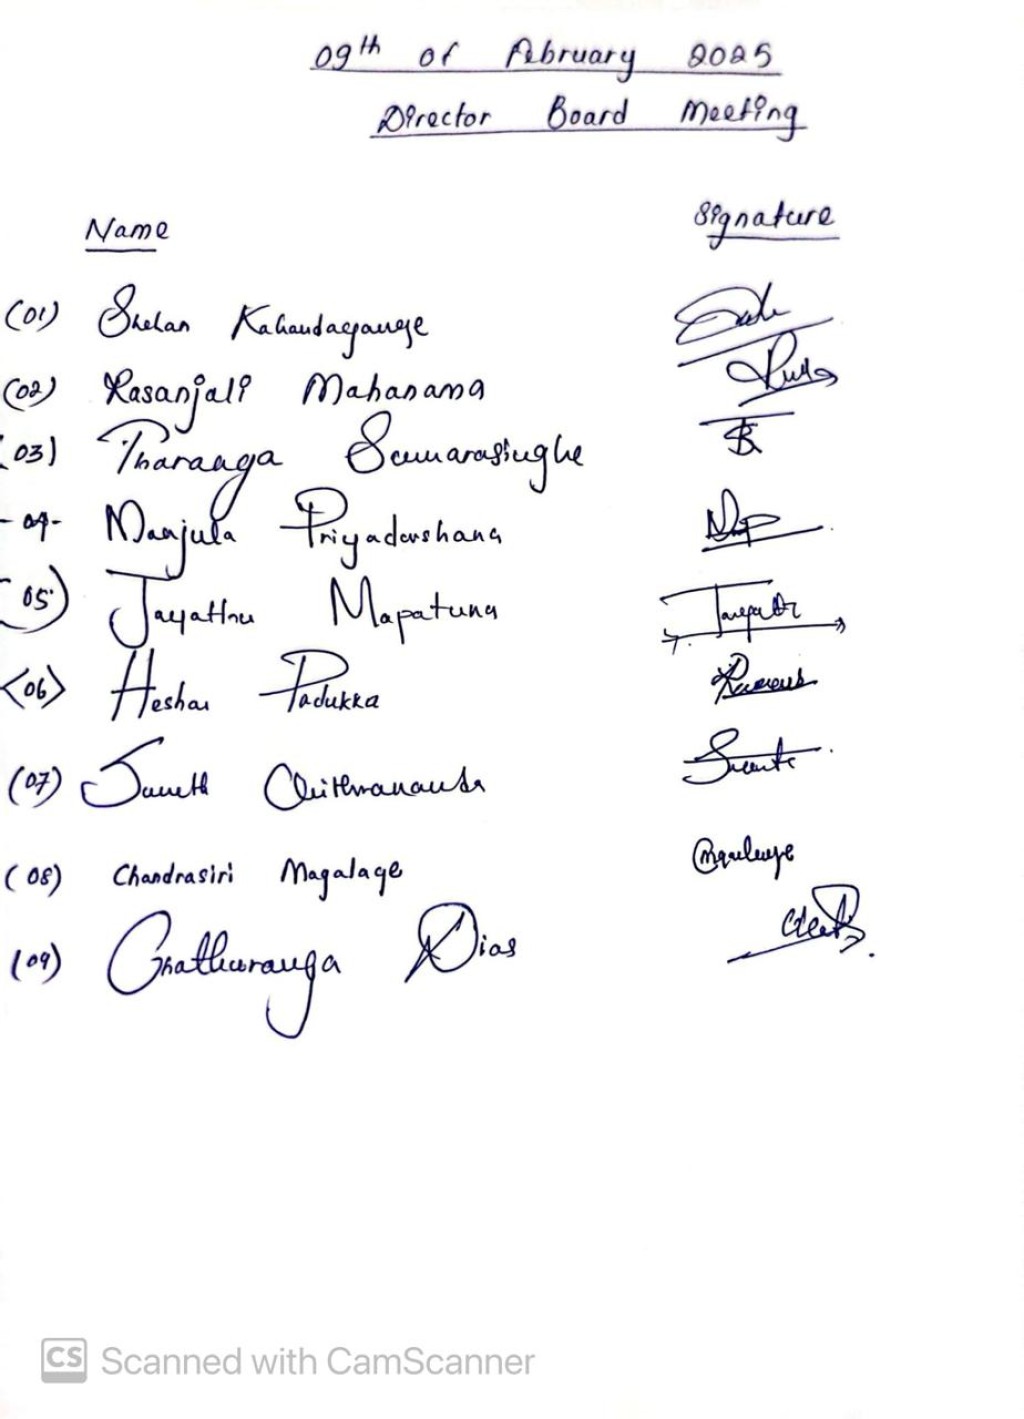 09th of February 2025
Director Board Meeting
Name Signature
(01) Shelan Kahandagamage
(02) Rasanjali Mahanama
(03) Tharanga Samarasinghe
-04- Manjula Priyadarshana
(05) Jayathu Mapatuna
<06> Heshan Padukka
(07) Janeth Chithrananda
(08) Chandrasiri Magalage
(09) Chathuranga Dias
CS Scanned with CamScanner